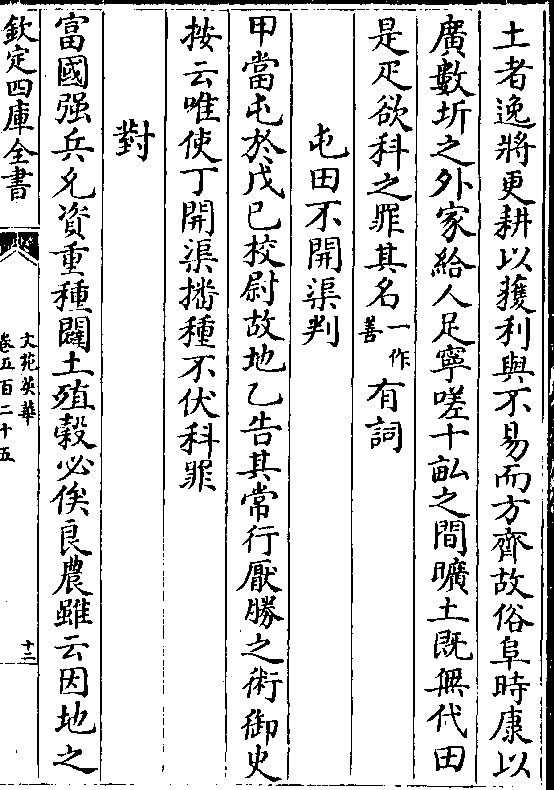 土者逸將更耕以獲利與不易而方齊故俗阜時康以
廣數圻之外家給人足寧嗟十畝之間曠土既無代田
是疋欲科之罪其名一作善有詞
屯田不開渠判
甲當屯於戊已校尉故地乙告其常行厭勝之術御史
按云唯使丁開渠播種不伏科罪
對
富國强兵允資重種闢土殖穀必俟良農雖云因地之
欽定四庫全書
文苑英華
卷五百二十五
十二